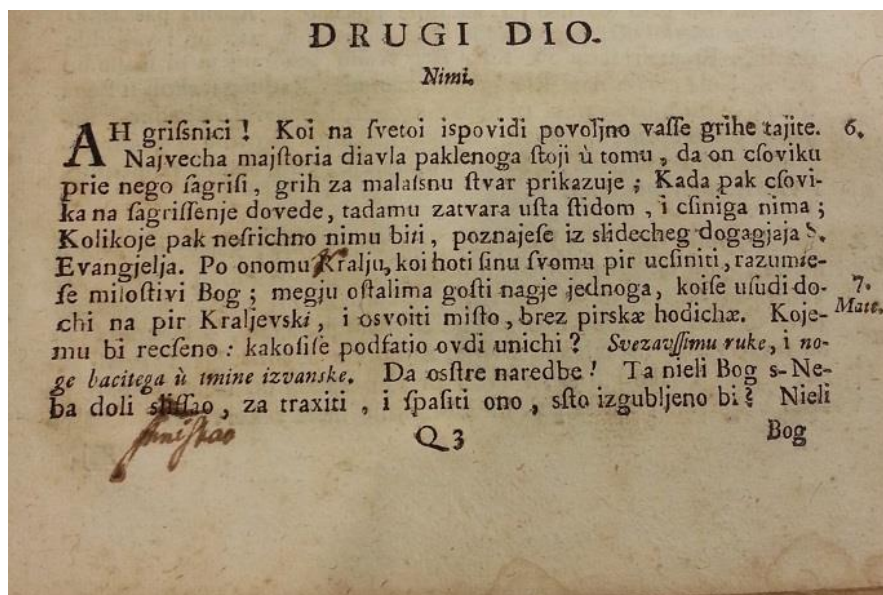 DRUGI DIO.
Nimi.
AH griſsnici ! Koi na ſvetoi ispovidi povoljno vaſſe grihe tajite. 6.
Najvecha majſtoria diavla paklenoga ſtoji ù tomu, da on cſoviku
prie nego ſagriſi, grih za malaſsnu ſtvar prikazuje ; Kada pak cſovi-
ka na ſagriſſenje dovede, tadamu zatvara uſta ſtidom , i cſiniga nima ;
Kolikoje pak neſrichno nimu biti, poznajeſe iz slidecheg dogagjaja S.
Evangjelja. Po onomu Kralju, koi hoti ſinu ſvomu pir ucſiniti, razumie-
ſe miloſtivi Bog ; megju oſtalima goſti nagje jednoga, koiſe uſudi do- 7.
chi na pir Kraljevski, i osvoiti miſto, brez pirskæ hodichæ. Koje- Mate.
mu bi recſeno : kakoſiſe podfatio ovdi unichi ? Svezavſſimu ruke, i no-
ge bacitega ù tmine izvanske. Da osſtre naredbe ! Ta nieli Bog s-Ne-
ba doli sliſſao, za traxiti , i ſpaſiti ono , sſto izgubljeno bi ? Nieli
Q 3 Bog